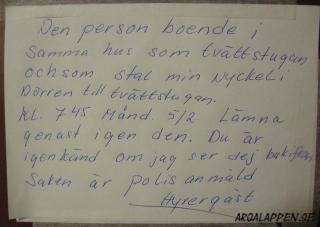 Den person boende i
samma hus som tvättstugan
och som stal min Nyckel i
Dörren till tvättstugan.
kl. 745 Månd. 5/2 Lämna
genast igen den. Du är
igenkänd om jag ser dej bakifrån
Saken är polisanmäld
Hyrergäst
ARGALAPPEN.SE